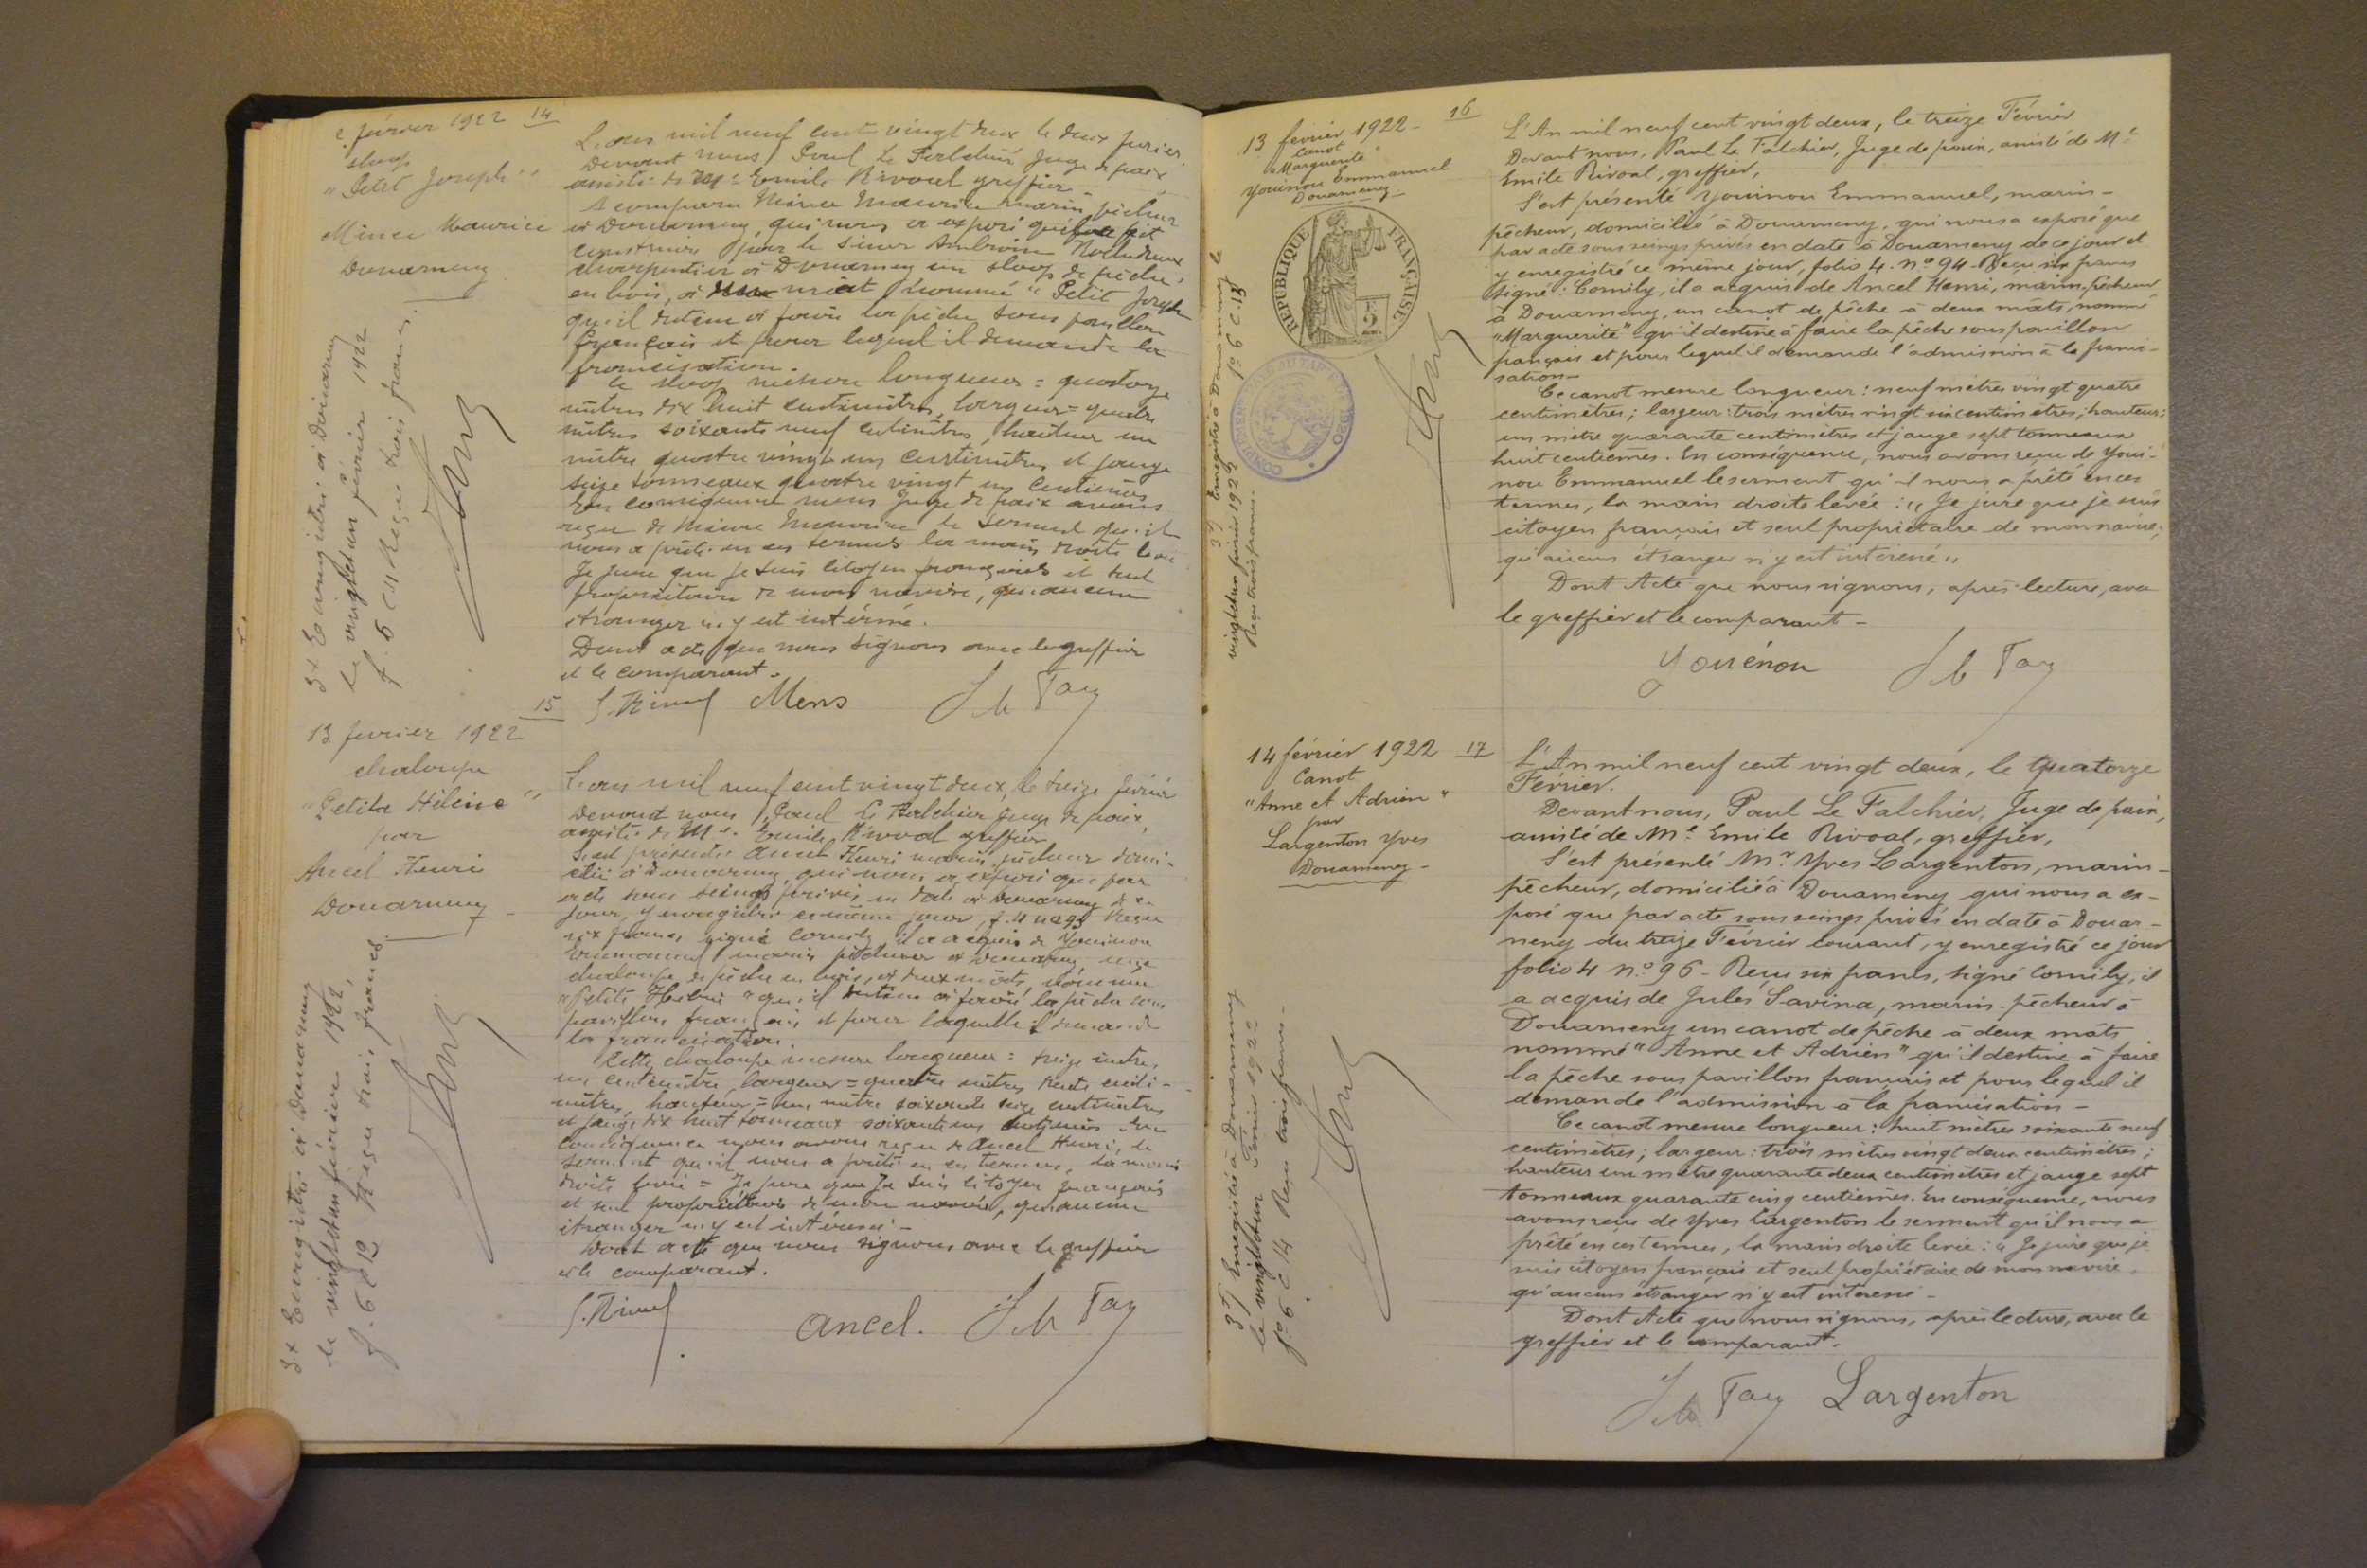 2 février 1922 14
sloop
"Petit Joseph"
Mince Maurice
Douarnenez
3t Enregistré à Douarnenez
le vingt et un février 1922
f. 6 C 11 Reçu trois francs.
L'an mil neuf cent vingt deux le deux février
Devant nous Paul Le Falchier Juge de paix
assisté de Me Emile Rivoal greffier
A comparu Mince Maurice marin pêcheur
à Douarnenez, qui nous a exposé qu'il a fait
construire par le sieur Ambroise
charpentier à Douarnenez un sloop de pêche,
en bois, à mât nommé "Petit Joseph
qu'il destine à faire la pêche sous pavillon
français et pour lequel il demande la
francisation.
Ce sloop mesure longueur = quatorze
mètres dix huit centimètres, largeur = quatre
mètres soixante neuf centimètres, hauteur un
mètre quatre vingt un centimètres et jauge
seize tonneaux quatre vingt un centièmes
En conséquence nous Juge de paix avons
reçu de Mince Maurice le serment qu'il
nous a prêté en ces termes la main droite levée
Je jure que je suis citoyen français et seul
propriétaire de mon navire, qu'aucun
étranger n'y est intéressé.
Dont acte que nous signons avec le greffier
et le comparant.
E. Rivoal Mens
15
13 février 1922
chaloupe
"Petite Hélène"
par
Ancel Henri
Douarnenez
3t Enregistré à Douarnenez
le vingt et un février 1922,
f. 6 C 12 Reçu trois francs
L'an mil neuf cent vingt deux, le treize février
Devant nous, Paul Le Falchier Juge de paix,
assisté de Me Emile Rivoal greffier
S'est présenté Ancel Henri marin pêcheur domi-
cilié à Douarnenez, qui nous a exposé que par
acte sous seings privés en date à Douarnenez de ce
jour, y enregistré ce même jour, f. 4 no 95 Reçu
six francs, signé Cornily il a acquis de Youinou
Emmanuel marin pêcheur à Douarnenez une
chaloupe de pêche en bois, à deux mâts, nommée
"Petite Hélène" qu'il destine à faire la pêche sous
pavillon français et pour laquelle il demande
la francisation.
Cette chaloupe mesure longueur = treize mètres
un centimètre, largeur = quatre mètres trente centi-
mètres, hauteur = un mètre soixante seize centimètres
et jauge dix huit tonneaux soixante un centièmes En
conséquence nous avons reçu de Ancel Henri, le
serment qu'il nous a prêté en ces termes, la main
droite levée = Je jure que je suis citoyen français
et seul propriétaire de mon navire, qu'aucun
étranger n'y est intéressé -
Dont acte que nous signons avec le greffier
et le comparant.
E. Rivoal Ancel.
16
13 février 1922 -
Canot
"Marguerite"
Youinou Emmanuel
Douarnenez -
RÉPUBLIQUE FRANÇAISE
3t Enregistré à Douarnenez le
vingt et un février 1922 fo 6 C. 13
Reçu trois francs.
L'An mil neuf cent vingt deux, le treize Février
Devant nous, Paul Le Falchier, Juge de paix, assisté de Me
Emile Rivoal, greffier,
S'est présenté Youinou Emmanuel, marin-
pêcheur, domicilié à Douarnenez, qui nous a exposé que
par acte sous seings privés en date à Douarnenez de ce jour et
y enregistré ce même jour, folio 4. no 94 - Reçu six francs
signé: Cornily, il a acquis de Ancel Henri, marin-pêcheur
à Douarnenez, un canot de pêche à deux mâts, nommé
"Marguerite" qu'il destine à faire la pêche sous pavillon
français et pour lequel il demande l'admission à la franci-
sation -
Ce canot mesure longueur: neuf mètres vingt quatre
centimètres; largeur: trois mètres vingt six centimètres; hauteur:
un mètre quarante centimètres et jauge sept tonneaux
huit centièmes. En conséquence, nous avons reçu de Youi-
nou Emmanuel le serment qu'il nous a prêté en ces
termes, la main droite levée: "Je jure que je suis
citoyen français et seul propriétaire de mon navire,
qu'aucun étranger n'y est intéressé"
Dont Acte que nous signons, après lecture, avec
le greffier et le comparant -
Youénou
14 février 1922 17
Canot
"Anne et Adrien"
par
Largenton Yves
Douarnenez -
3t Enregistré à Douarnenez
le vingt et un Février 1922
fo 6 C 14 Reçu trois francs -
L'An mil neuf cent vingt deux, le Quatorze
Février.
Devant nous, Paul Le Falchier, Juge de paix,
assisté de Me Emile Rivoal, greffier,
S'est présenté Mr Yves Largenton, marin-
pêcheur, domicilié à Douarnenez qui nous a ex-
posé que par acte sous seings privés en date à Douar-
nenez du treize Février courant, y enregistré ce jour
folio 4 no 96 - Reçu six francs, signé Cornily, il
a acquis de Jules Savina, marin-pêcheur à
Douarnenez un canot de pêche à deux mâts
nommé "Anne et Adrien" qu'il destine à faire
la pêche sous pavillon français et pour lequel il
demande l'admission à la francisation -
Ce canot mesure longueur: huit mètres soixante neuf
centimètres; largeur: trois mètres vingt deux centimètres;
hauteur un mètre quarante deux centimètres et jauge sept
tonneaux quarante cinq centièmes. En conséquence, nous
avons reçu de Yves Largenton le serment qu'il nous a
prêté en ces termes, la main droite levée: "Je jure que je
suis citoyen français et seul propriétaire de mon navire,
qu'aucun étranger n'y est intéressé -
Dont Acte que nous signons, après lecture, avec le
greffier et le comparant.
Largenton